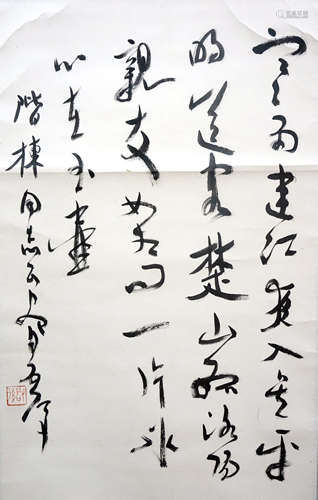 寒雨連江夜入吴平
明送客楚山孤洛阳
親友如相问一片冰
心在玉壶
階棟同志